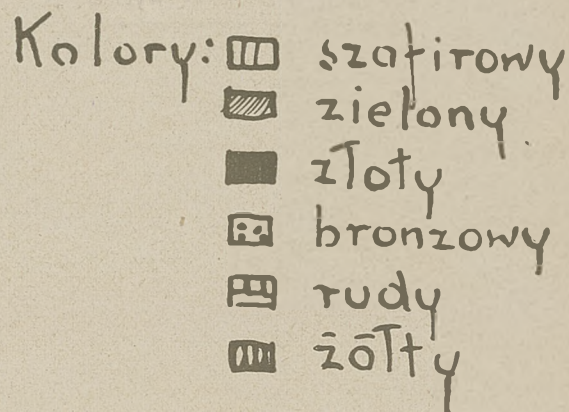 Kolory: szafirowy
zielony
złoty
bronzowy
rudy
żółty